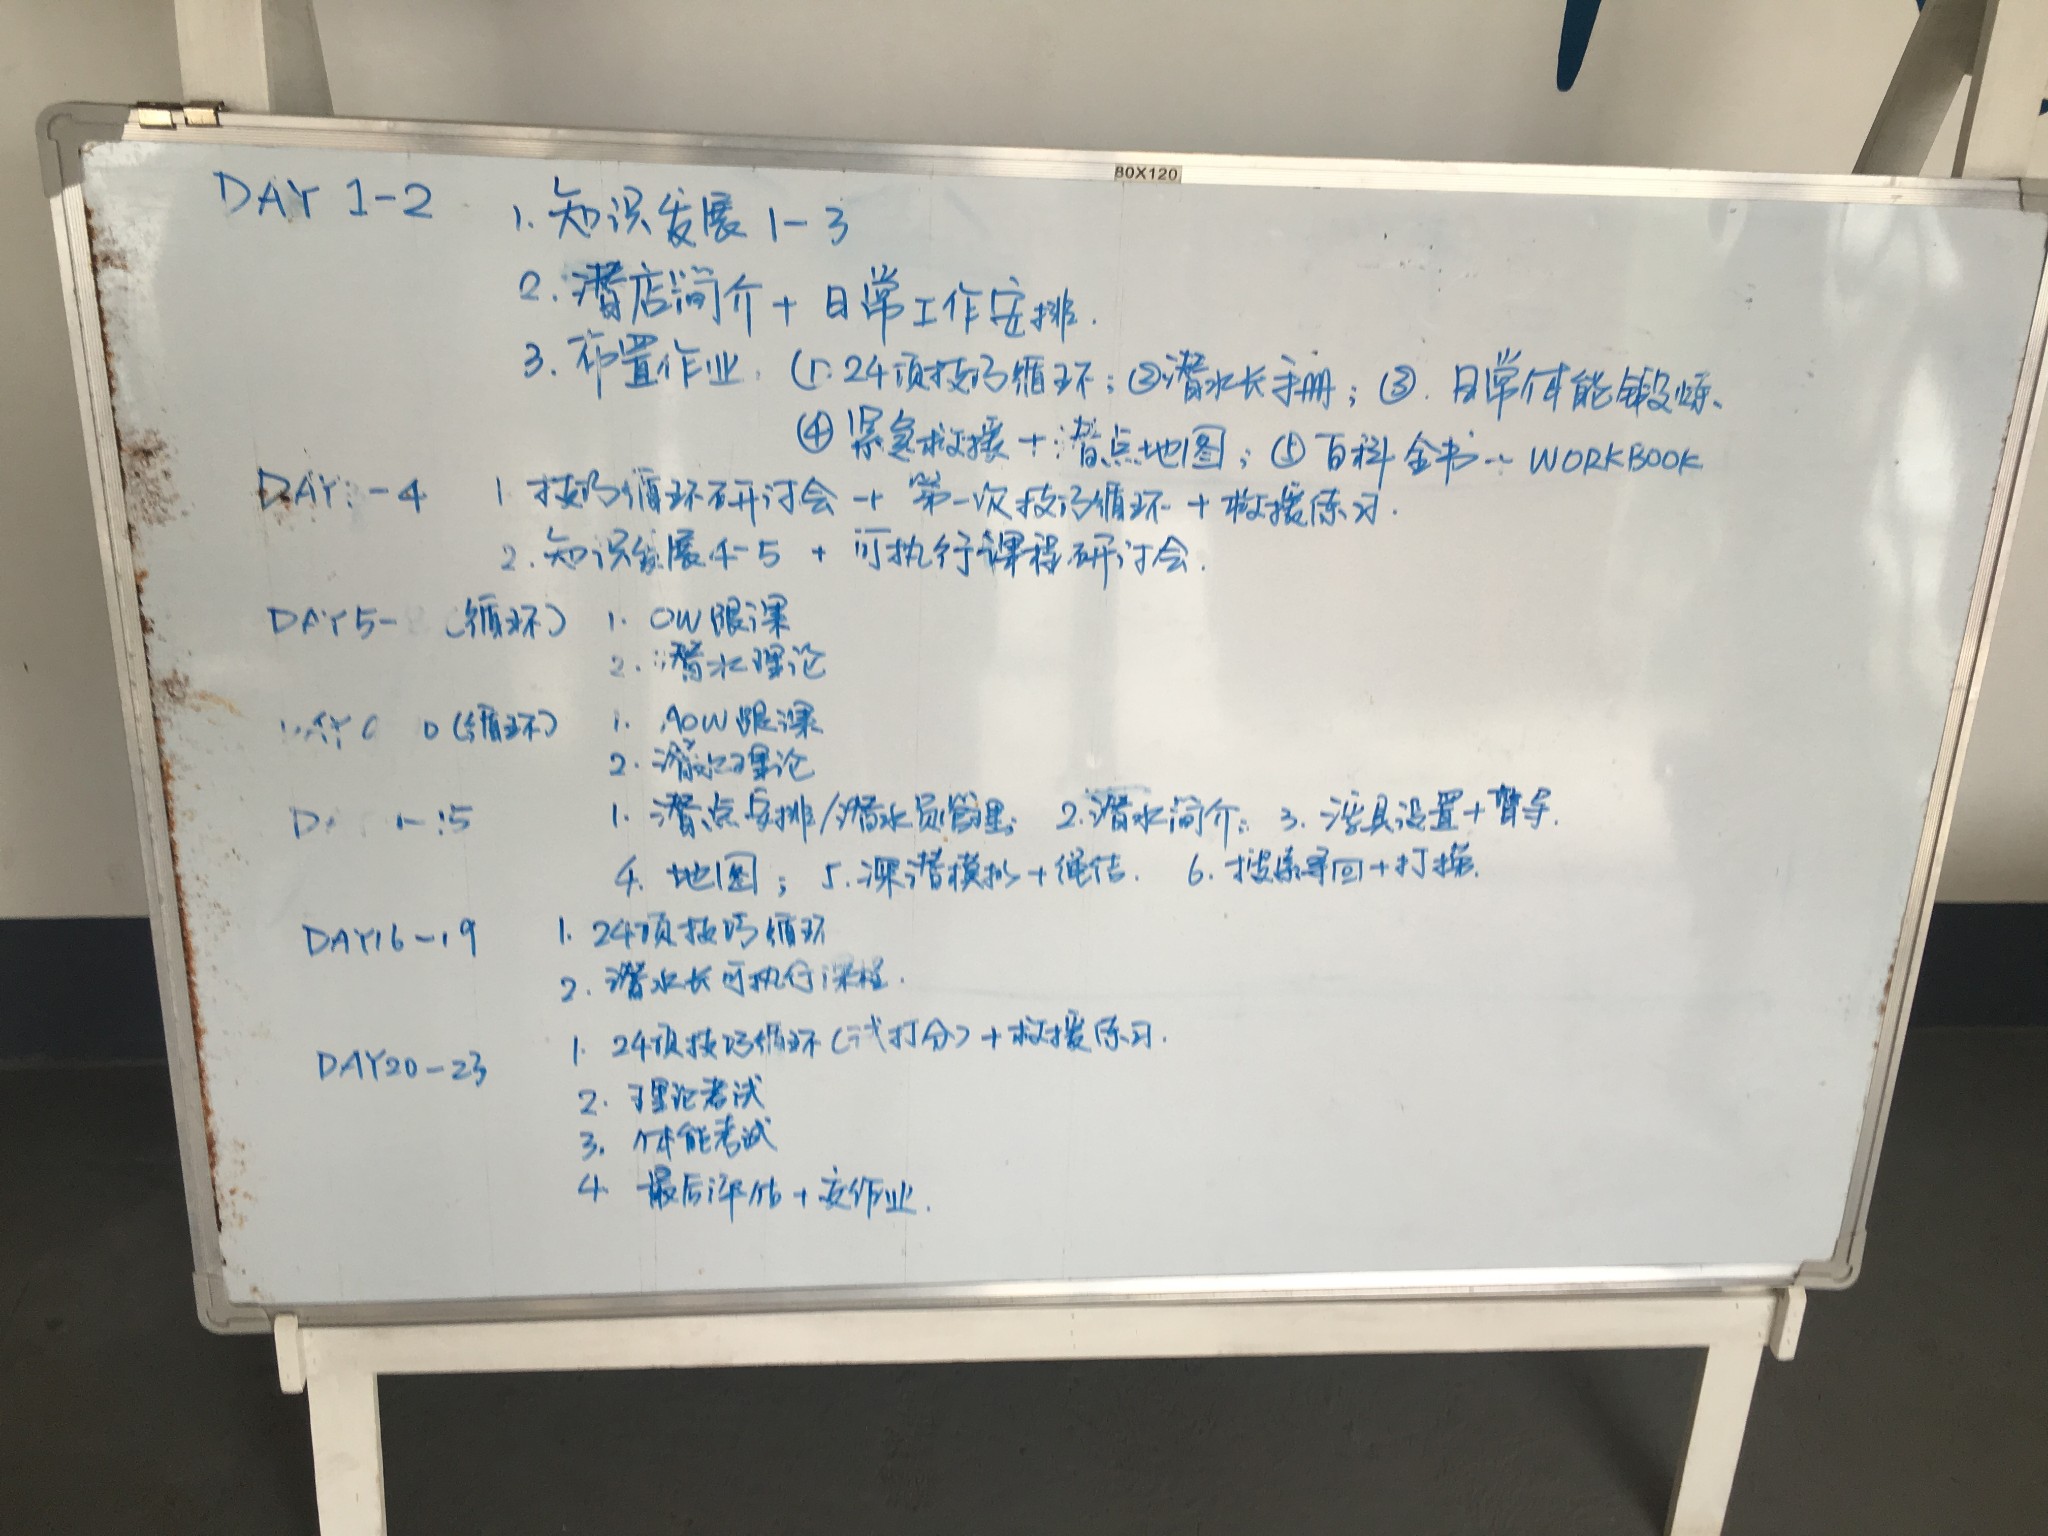 80X120
DAY 1-2 1. 知识发展 1-3
2. 潜店简介 + 日常工作安排.
3. 布置作业. ①. 24项技巧循环; ②潜水长手册; ③. 日常体能锻炼.
④ 紧急救援 + 潜点地图; ⑤ 百科全书 - WORKBOOK
DAY -4 1. 技巧循环研讨会 + 第一次技巧循环 + 救援练习.
2. 知识发展4-5 + 可执行课程研讨会.
DAY5- (循环) 1. OW跟课
2. 潜水理论
(循环) 1. AOW跟课
2. 潜水理论
1. 潜点安排/潜水员管理; 2.潜水简介; 3. 浮具设置+督导.
4. 地图; 5. 深潜模拟+绳结. 6. 搜索寻回+打捞.
DAY16-19 1. 24项技巧循环
2. 潜水长可执行课程.
DAY20-23 1. 24项技巧循环(试打分)+救援练习.
2. 理论考试
3. 体能考试
4 最后评估+交作业.